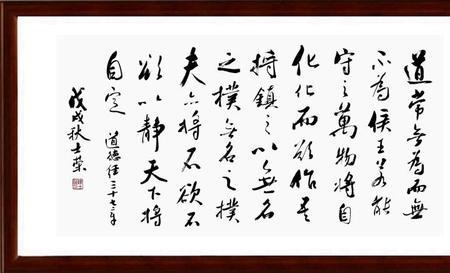 道常無為而無
不為侯王若能
守之萬物將自
化化而欲作吾
將鎮之以無名
之樸無名之樸
夫亦將不欲不
欲以靜天下將
自定 道德經三十七章
戊戌秋士榮